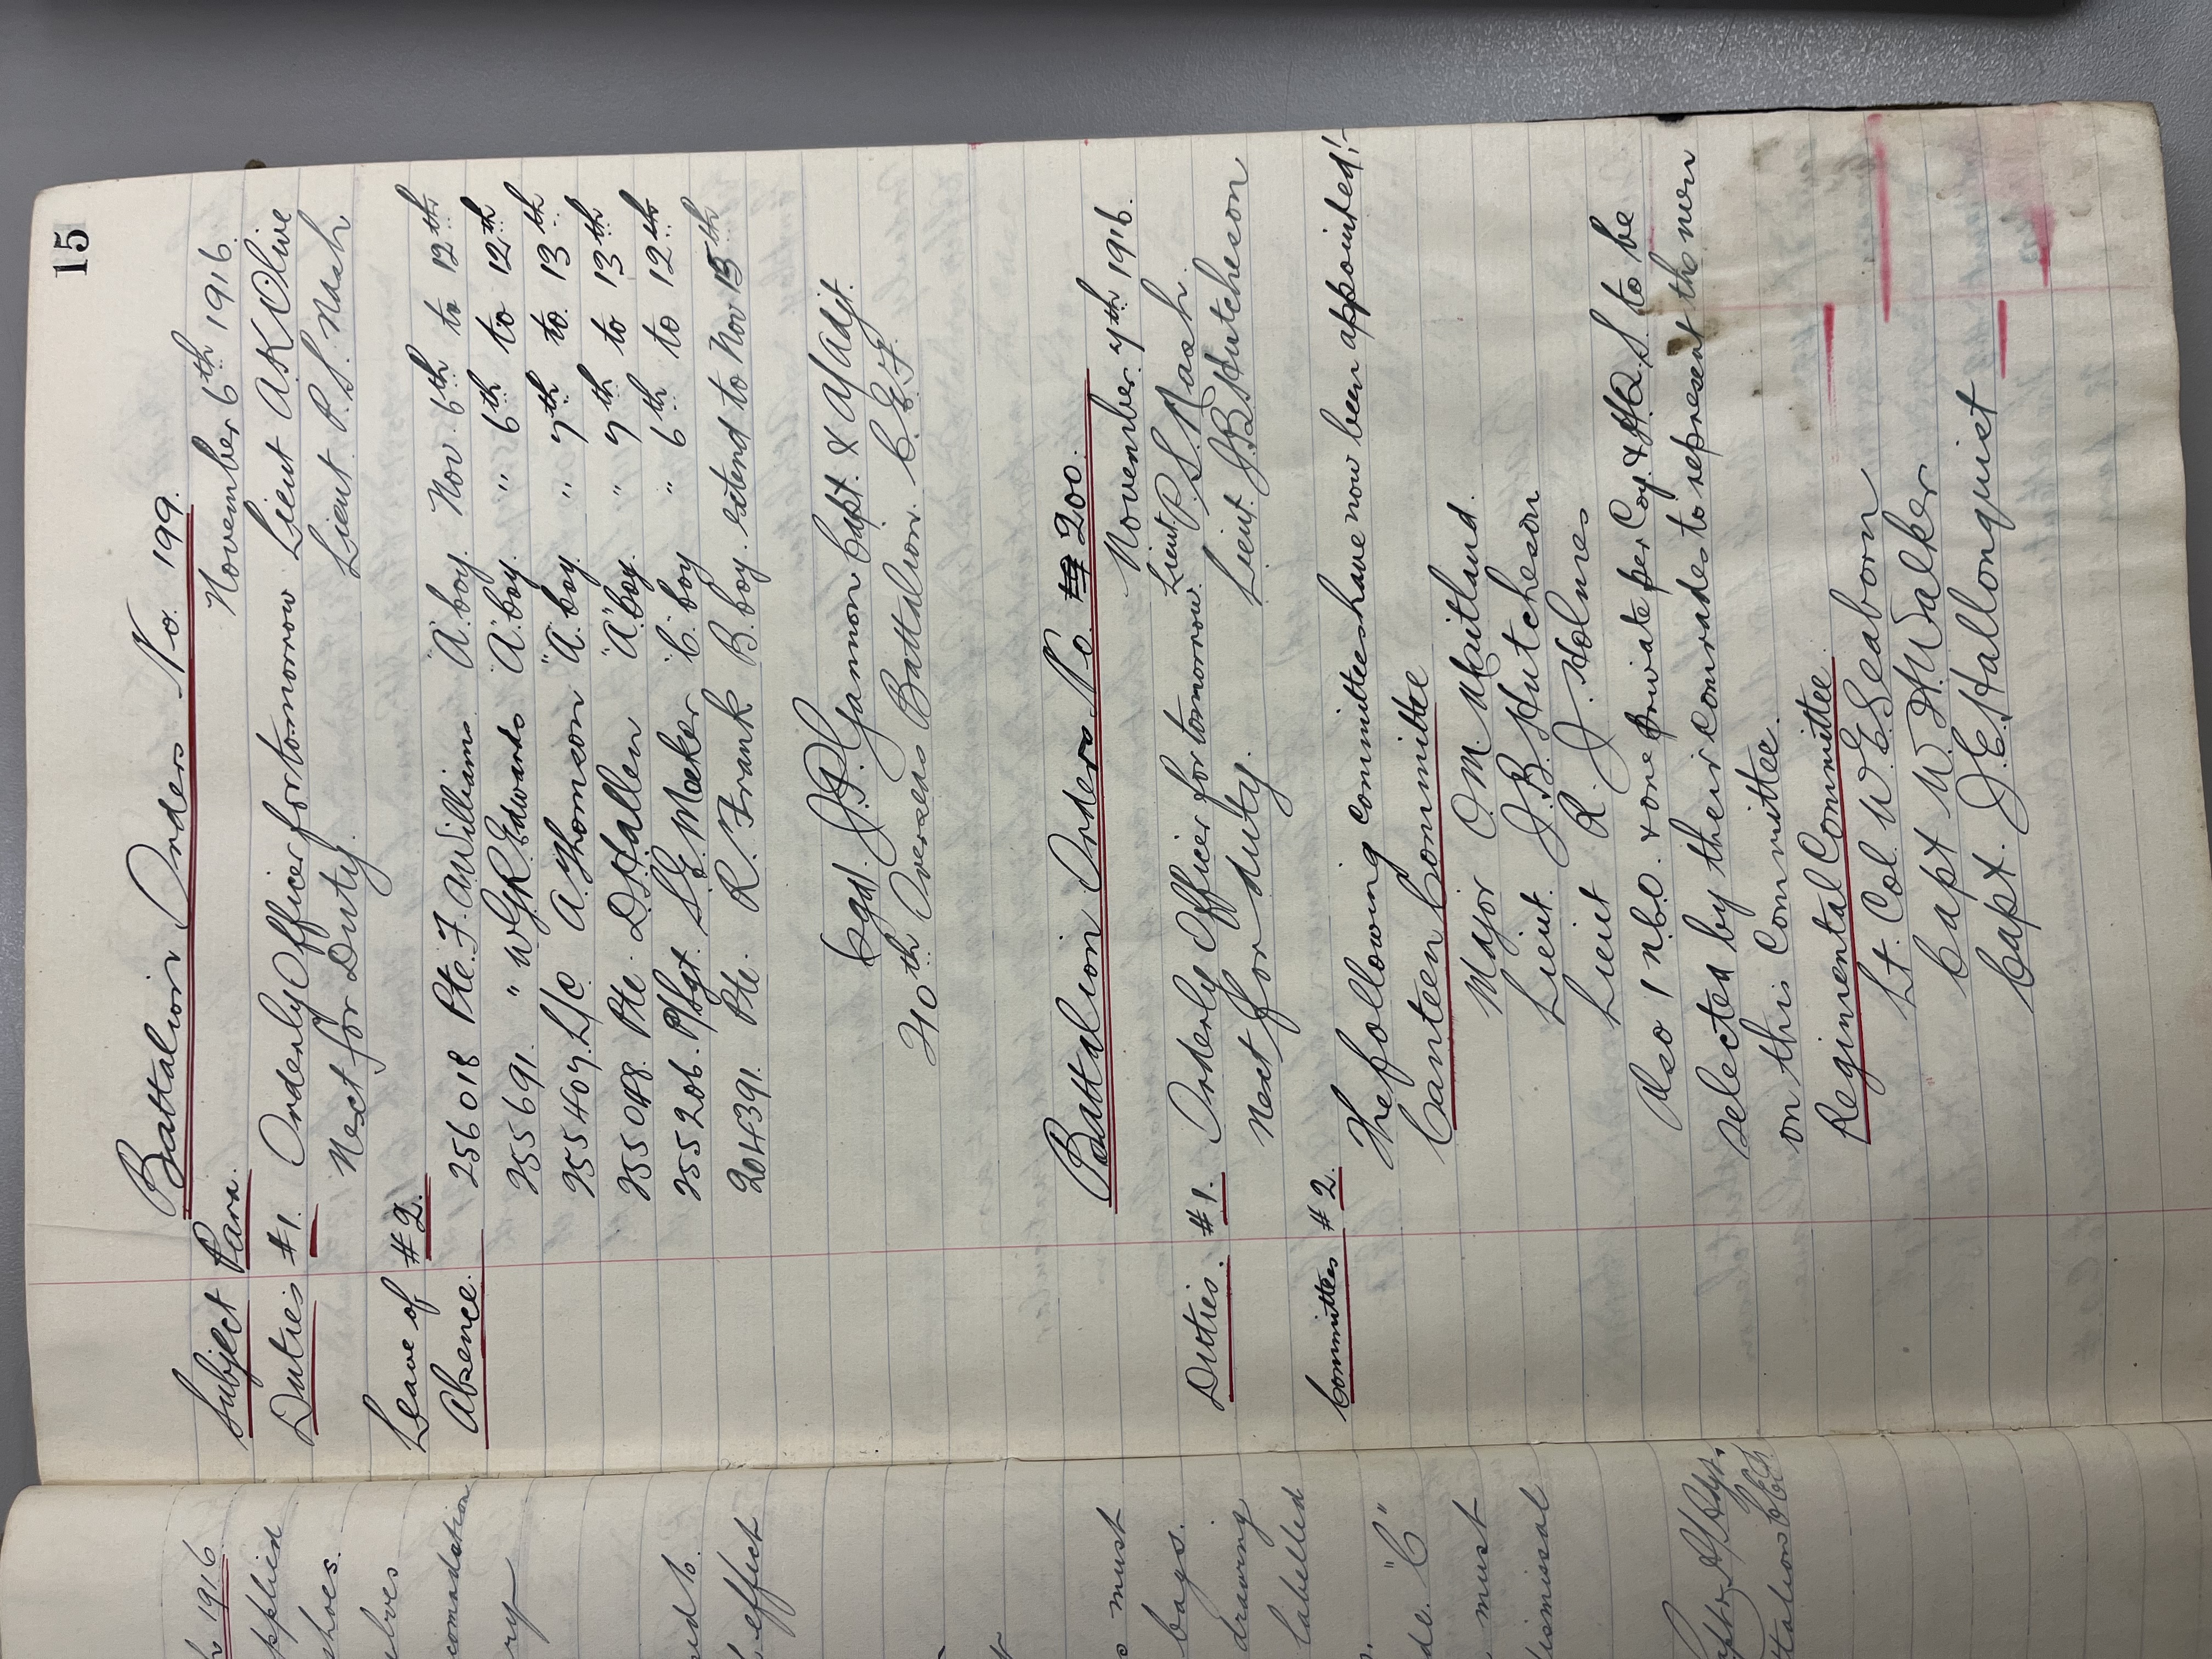 15
Battalion Orders No. 199.
Subject Para. November 6th 1916.
Duties #1. Orderly Officer for tomorrow Lieut A.K Olive
Next for Duty. Lieut. P.S. Nash
Leave of #2.
Absence. 256018 Pte. F. A. Williams. "A". Coy. Nov. 6th to 12th
255691. " W.G.R. Edwards "A". Coy. " 6th to 12th
255407. L/C. A. Thomson "A". Coy. " 7th to. 13th
255048. Pte. D. Hallen "A". Coy. " 7th to 13th
255206. P/Sgt. S.G. Meeker "C". Coy " 6th to 12th
204391. Pte. R. Frank B. Coy. extend to Nov 15th
(Sgd). Capt. & A/Adjt.
210th Overseas Battalion. C.E.F.
Battalion Orders No. 200.
November 7th 1916.
Duties. #1. Orderly Officer for tomorrow. Lieut. P.S. Nash.
Next for duty. Lieut. J.B. Hutcheson
Committees #2. The following committees have now been appointed:-
Canteen Committee
Major O.M. Maitland.
Lieut. J.B. Hutcheson
Lieut R. J. Holmes
Also 1 N.C.O. & one private per Coy. & H.Q.S. to be
selected by their comrades to represent the men
on this Committee.
Regimental Committee.
Lt. Col. W.E. Seaborn
Capt W. H. Walker
Capt. J.E. Hallonquist
1916
pplied
shoes.
elves
comodation
effect
must
bags.
drawing
labelled
"C"
must
dismissal